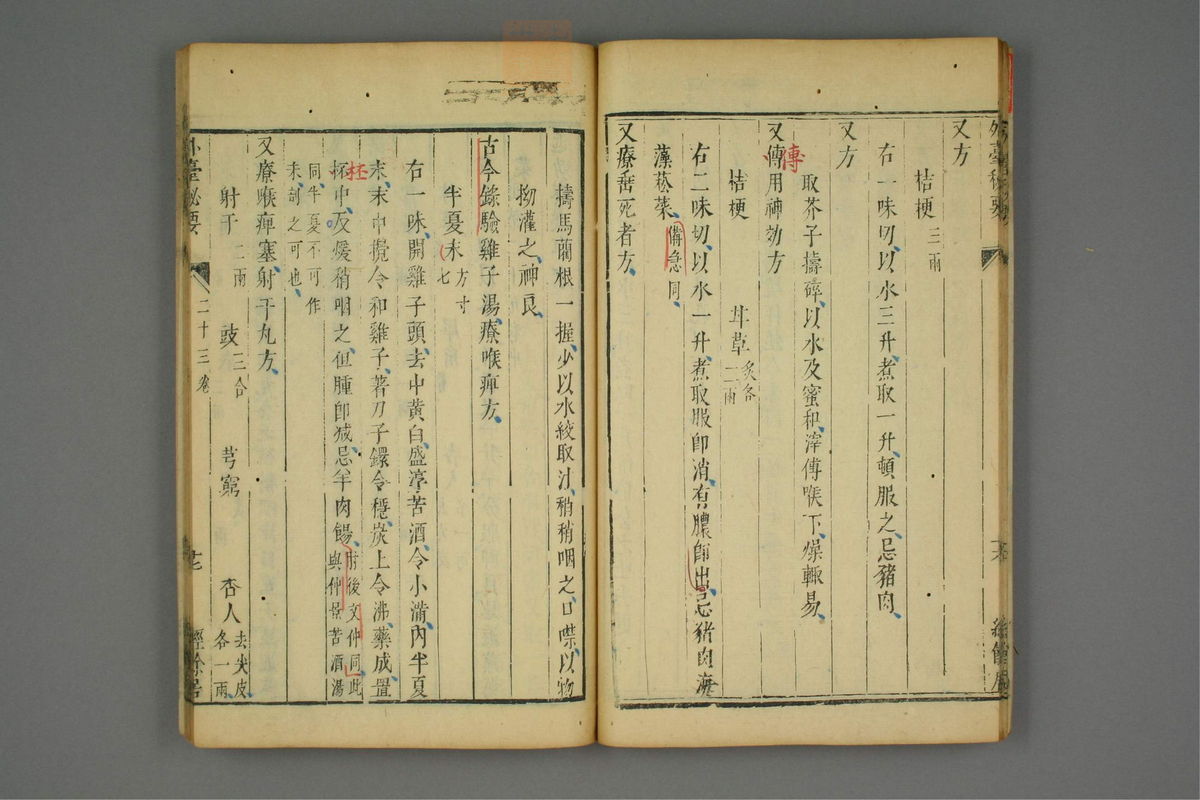 又方
桔梗三兩
右一味切以水三升煮取一升頓服之忌猪肉
又方
取芥子擣碎以水及蜜和滓傅喉下燥輙易
又傳用神効方
傅
桔梗 甘草炙各二兩
右二味切以水一升煮取服即消有膿即出忌猪肉海
藻菘菜備急同
又療垂死者方
擣馬藺根一握少以水絞取汁稍稍咽之口噤以物
抝灌之神良
古今錄驗雞子湯療喉痺方
半夏末方寸七
右一味開雞子頭去中黄白盛淳苦酒令小滿内半夏
末末中攪令和雞子著刀子鐶令穩炭上令沸藥成置
杯中及煖稍咽之但腫即減忌羊肉餳肘後文仲同此與仲景苦酒湯
杯
同半夏不可作末剉之可也
又療喉痺塞射干丸方
射干二兩 豉三合 芎藭 杏人去尖皮各一兩
外臺秘要 二十三卷 經餘居